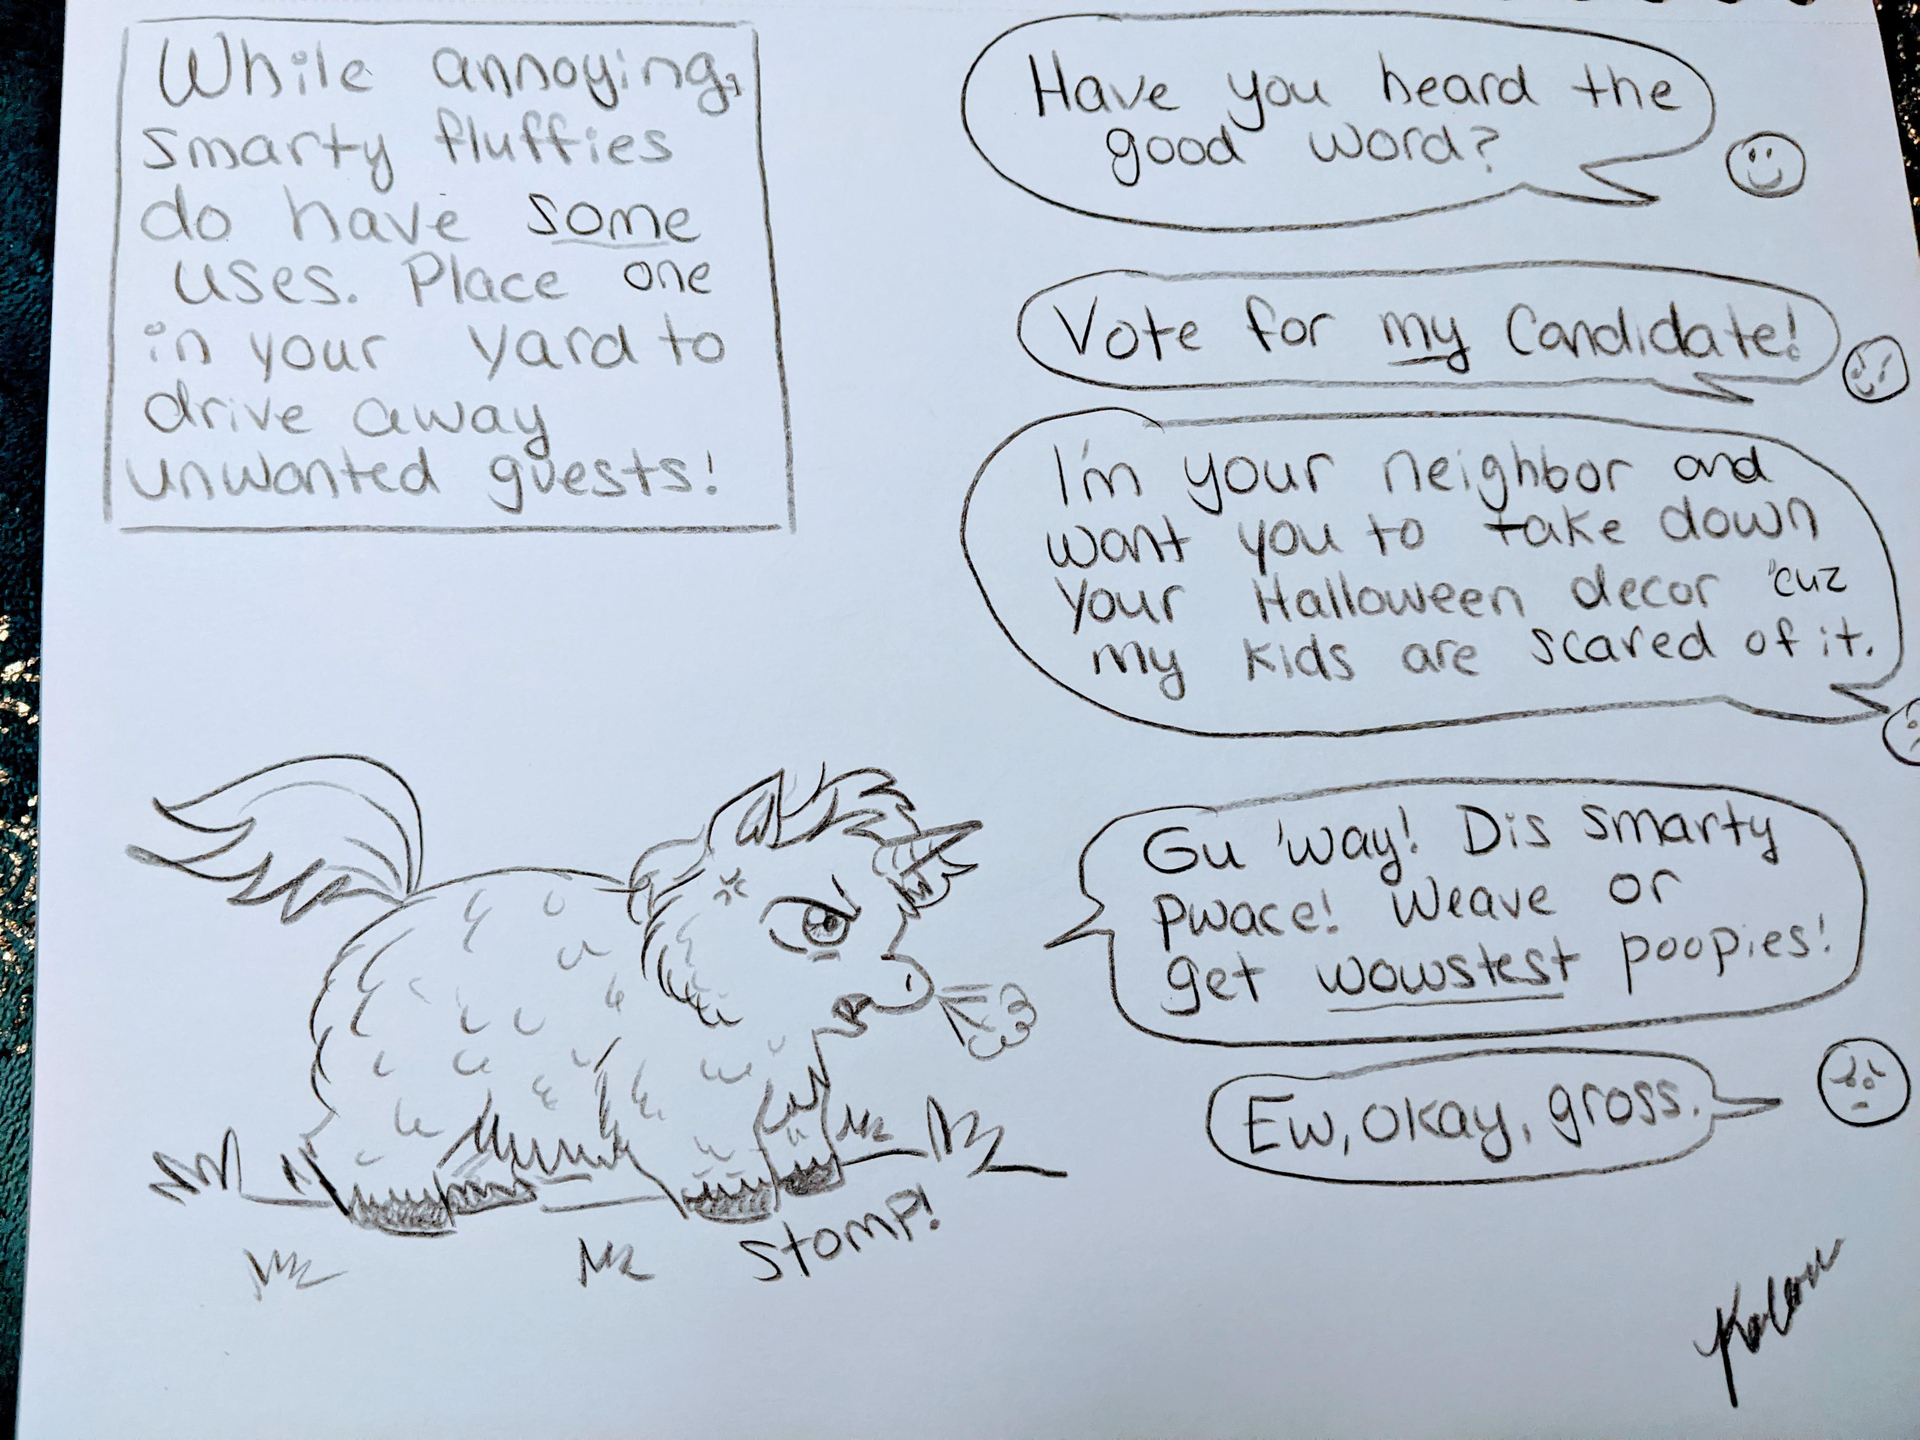 While annoying,
smarty fluffies
do have some
uses. Place one
in your yard to
drive away
unwanted guests!
Have you heard the
good word?
Vote for my Candidate!
I'm your neighbor and
want you to take down
your Halloween decor 'cuz
my kids are scared of it.
Gu 'way! Dis smarty
pwace! Weave or
get wowstest poopies!
Ew, okay, gross.
Stomp!